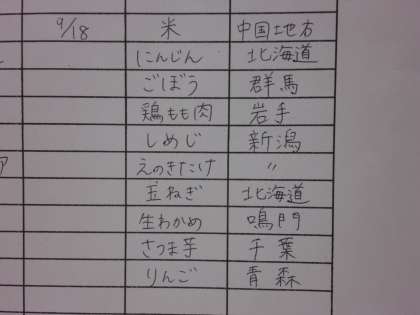 9/18 米 中国地方
にんじん 北海道
ごぼう 群馬
鶏もも肉 岩手
しめじ 新潟
えのきたけ 〃
玉ねぎ 北海道
生わかめ 鳴門
さつま芋 千葉
りんご 青森